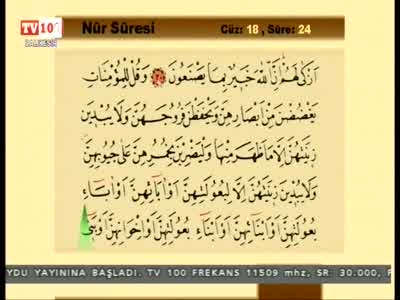 TV 100
BALIKESİR
Nûr Sûresi
Cüz: 18 , Sûre: 24
اَزْكٰى لَهُمْ اِنَّ اللّٰهَ خَبِيرٌ بِمَا يَصْنَعُونَ ۝٣٠ وَقُلْ لِلْمُؤْمِنَاتِ
يَغْضُضْنَ مِنْ اَبْصَارِهِنَّ وَيَحْفَظْنَ فُرُوجَهُنَّ وَلَا يُبْدِينَ
زِينَتَهُنَّ اِلَّا مَا ظَهَرَ مِنْهَا وَلْيَضْرِبْنَ بِخُمُرِهِنَّ عَلٰى جُيُوبِهِنَّ
وَلَا يُبْدِينَ زِينَتَهُنَّ اِلَّا لِبُعُولَتِهِنَّ اَوْ اٰبَٓائِهِنَّ اَوْ اٰبَٓاءِ
بُعُولَتِهِنَّ اَوْ اَبْنَٓائِهِنَّ اَوْ اَبْنَٓاءِ بُعُولَتِهِنَّ اَوْ اِخْوَانِهِنَّ اَوْ بَنِٓي
YDU YAYININA BAŞLADI. TV 100 FREKANS 11509 mhz, SR: 30.000, F